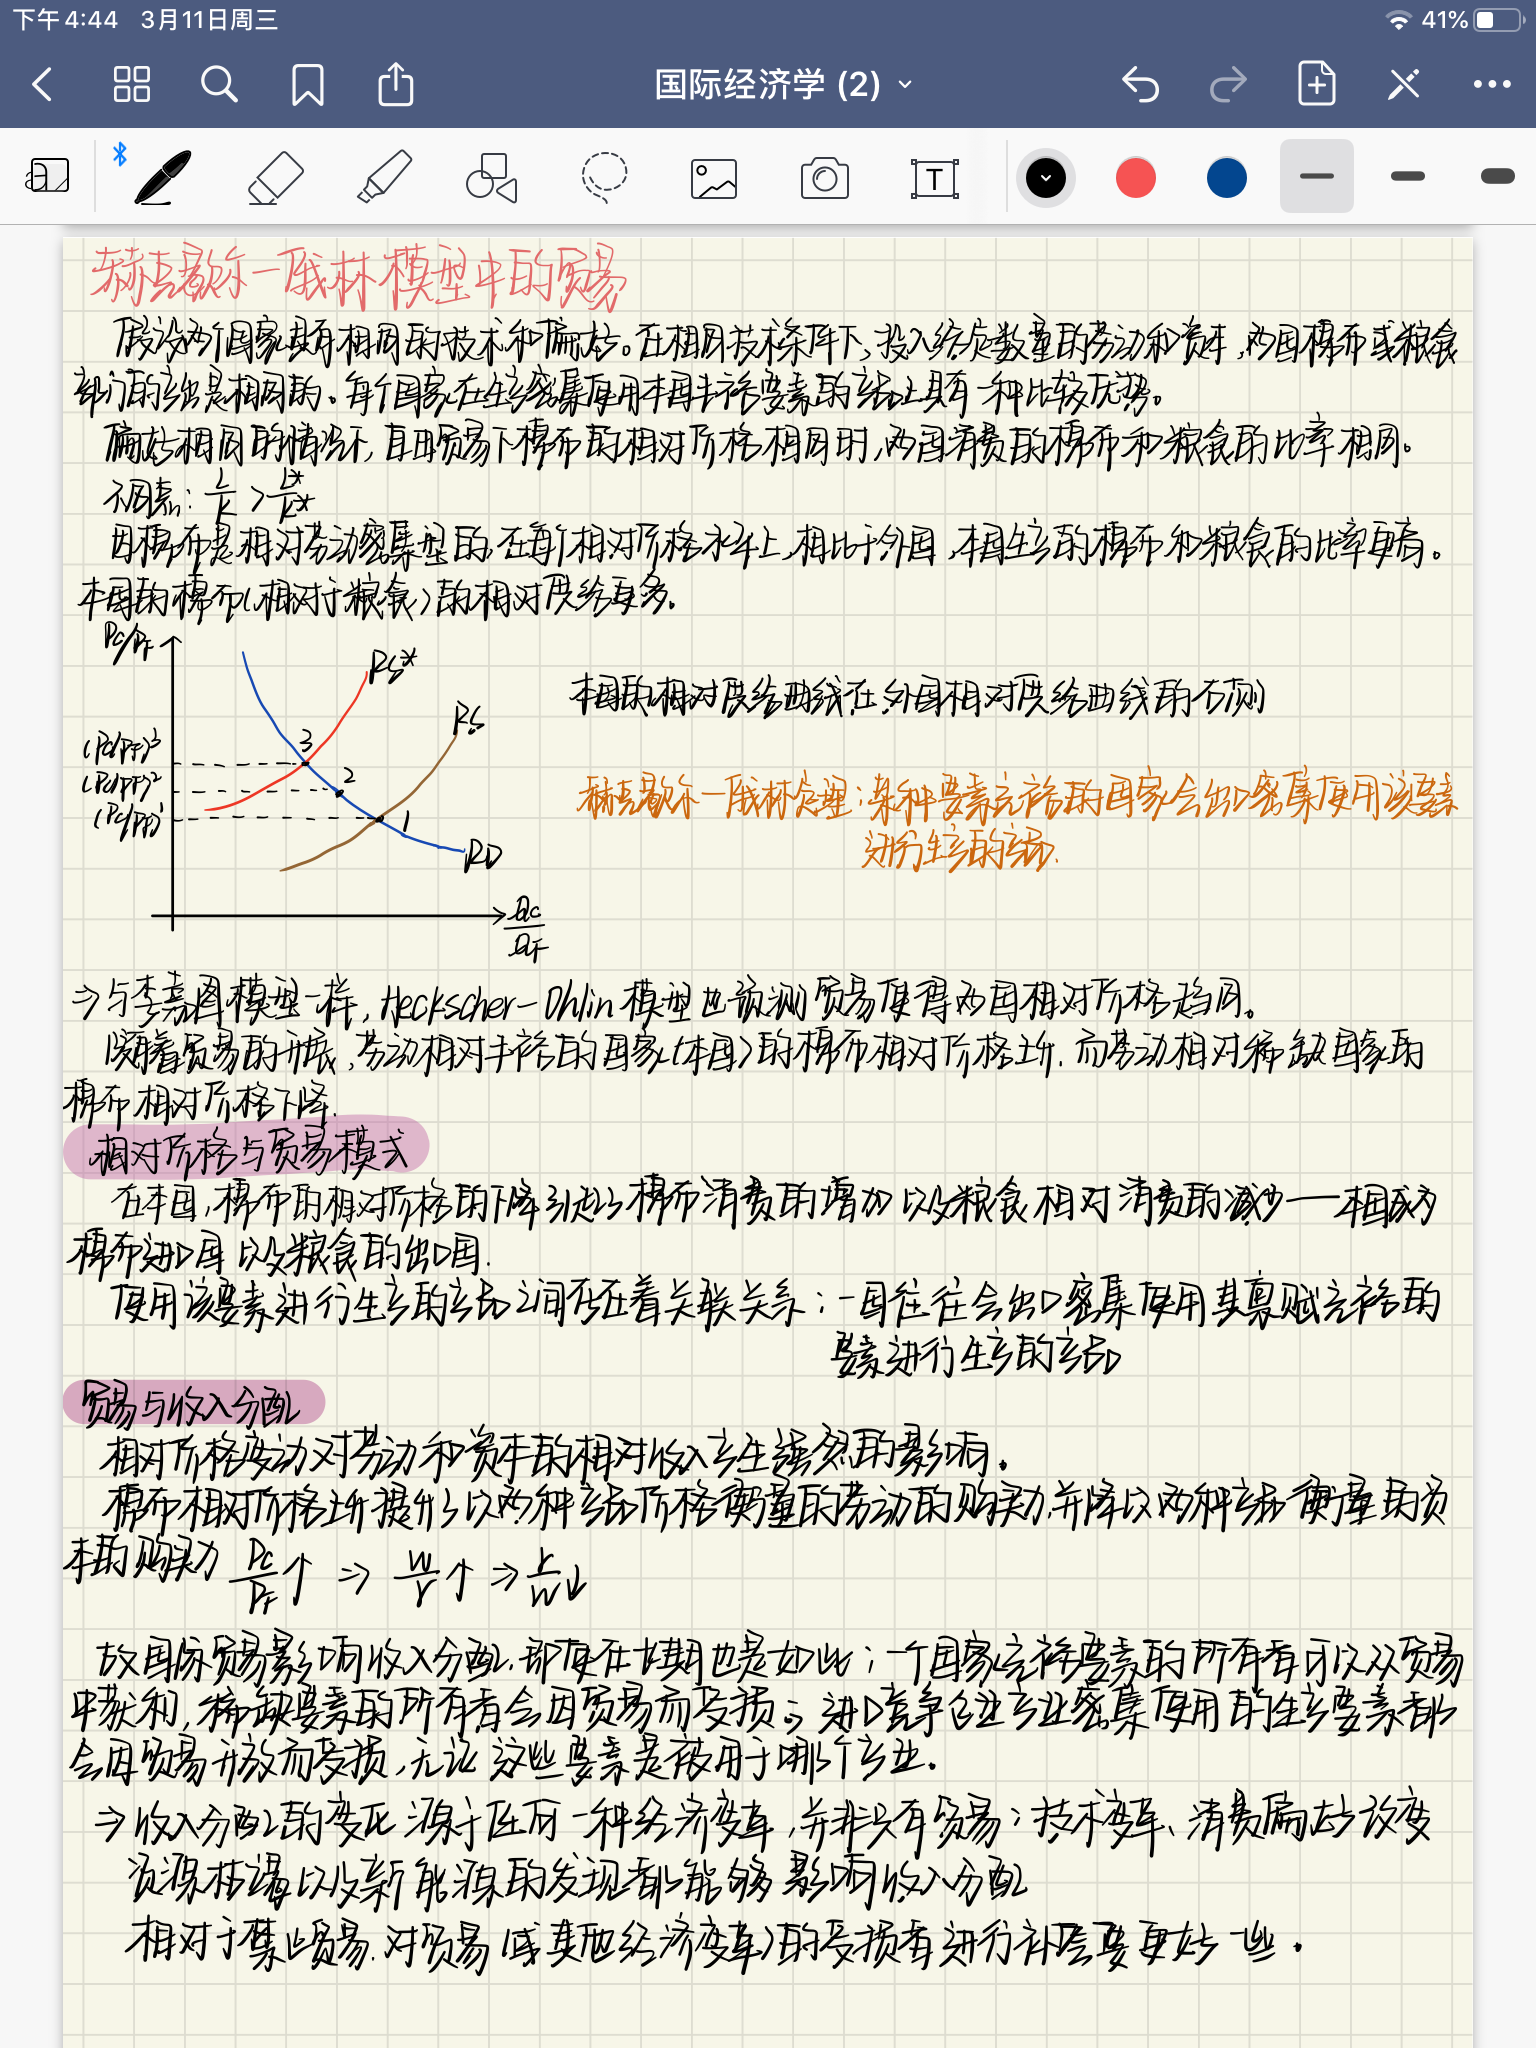 下午4:44 3月11日周三
41%
国际经济学 (2)
T
赫克歇尔一俄林模型中的贸易
假设两个国家具有相同的技术和偏好。在相同技术条件下，投入给定数量的劳动和资本，两国棉布或粮食
部门的产出是相同的。每个国家在生产密集使用本国丰裕要素的产品上具有一种比较优势。
偏好相同的情况下，自由贸易下棉布的相对价格相同时，两国消费的棉布和粮食的比率相同。
不同点in: L/K > L*/K*
因棉布是相对劳动密集型的，在每个相对价格水平上，相比于外国，本国生产的棉布和粮食的比率更高。
本国的棉布(相对于粮食)的相对供给更多.
Pc/PF
RS*
RS
本国的相对供给曲线在外国相对供给曲线的右侧
(Pc/PF)³
3
(Pc/PF)²
2
(Pc/PF)¹
1
RD
赫克歇尔一俄林定理：某种要素充裕的国家会出口密集使用该要素
进行生产的产品.
Qc/QF
⇒与李嘉图模型一样，Heckscher-Ohlin模型也预测贸易使得两国相对价格趋同。
随着贸易的开展，劳动相对丰裕的国家(本国)的棉布相对价格上升.而劳动相对稀缺国家的
棉布相对价格下降.
相对价格与贸易模式
在本国，棉布的相对价格的下降引起了棉布消费的增加以及粮食相对消费的减少——本国成为
棉布进口国以及粮食的出口国.
使用该要素进行生产的产品之间存在着关联关系：一国往往会出口密集使用其禀赋充裕的
要素进行生产的产品
贸易与收入分配
相对价格变动对劳动和资本的相对收入产生强烈的影响.
棉布相对价格上升提升了以两种产品价格衡量的劳动的购买力，并降以两种产品衡量的资
本的购买力 Pc/PF↑ ⇒ w/r↑ ⇒ r/w↓
故国际贸易影响收入分配.即使在长期也是如此；一个国家充裕要素的所有者可以从贸易
中获利，稀缺要素的所有者会因贸易而受损；进口竞争性产业密集使用的生产要素都
会因贸易开放而受损，无论这些要素是被用于哪个产业.
⇒收入分配的变化源于任何一种经济变革，并非只有贸易；技术变革、消费偏好改变
资源枯竭以及新能源的发现都能够影响收入分配
相对于禁止贸易.对贸易(或其他经济变革)的受损者进行补偿要更好一些.